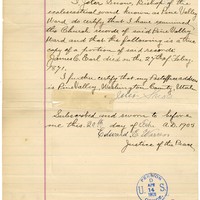 I Jeter Snow, Bishop of the
ecclesiastical ward known as Pine Valley
Ward do certify that I have examined
the Church records of said Pine Valley
Ward and that the following is a true
copy of a portion of said records
James C. Earl died on the 27th of
1871.
I further certify that my Postoffice address
is Pine Valley Washington County, Utah
Jeter Snow
Subscribed and sworn to before
me this 20th day of A.D. 1903
Justice of the Peace